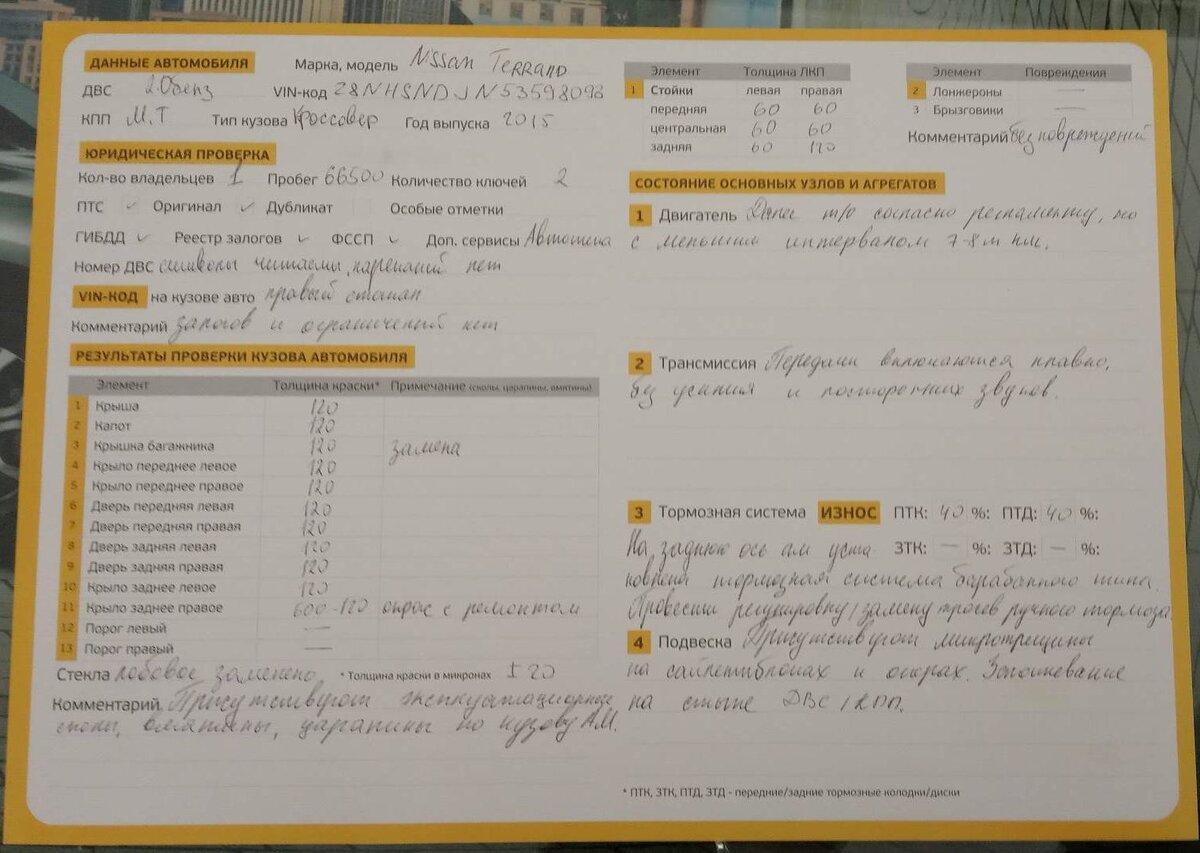 ДАННЫЕ АВТОМОБИЛЯ Марка, модель Nissan Terrano
ДВС 2.0бенз VIN-код Z8NHSNDJN53598096
КПП М.Т Тип кузова Кроссовер Год выпуска 2015
ЮРИДИЧЕСКАЯ ПРОВЕРКА
Кол-во владельцев 1 Пробег 66500 Количество ключей 2
ПТС ✓ Оригинал ✓ Дубликат Особые отметки
ГИБДД ✓ Реестр залогов ✓ ФССП ✓ Доп. сервисы Автотека
Номер ДВС символы читаемы, нареканий нет
VIN-КОД на кузове авто правый стакан
Комментарий залогов и ограничений нет
РЕЗУЛЬТАТЫ ПРОВЕРКИ КУЗОВА АВТОМОБИЛЯ
Элемент Толщина краски* Примечание (сколы, царапины, вмятины)
1 Крыша 120
2 Капот 120
3 Крышка багажника 120 замена
4 Крыло переднее левое 120
5 Крыло переднее правое 120
6 Дверь передняя левая 120
7 Дверь передняя правая 120
8 Дверь задняя левая 120
9 Дверь задняя правая 120
10 Крыло заднее левое 120
11 Крыло заднее правое 600-120 окрас с ремонтом
12 Порог левый —
13 Порог правый —
Стекла лобовое заменено * Толщина краски в микронах ±20
Комментарий Присутствуют эксплуатационные
сколы, вмятины, царапины по кузову А.М.
Элемент Толщина ЛКП
1 Стойки левая правая
передняя 60 60
центральная 60 60
задняя 60 120
Элемент Повреждения
2 Лонжероны —
3 Брызговики —
Комментарий без повреждений
СОСТОЯНИЕ ОСНОВНЫХ УЗЛОВ И АГРЕГАТОВ
1 Двигатель т/о согласно регламенту, но
с меньшим интервалом 7-8 т км.
2 Трансмиссия Передачи включаются плавно,
без усилия и посторонних звуков.
3 Тормозная система ИЗНОС ПТК: 40 %: ПТД: 40 %:
На заднюю ось ам уста- ЗТК: — %: ЗТД: — %:
новлена тормозная система барабанного типа.
Провести регулировку/замену тросов ручного тормоза
4 Подвеска Присутствуют микротрещины
на сайлентблоках и опорах. Запотевание
на стыке ДВС / КПП.
* ПТК, ЗТК, ПТД, ЗТД - передние/задние тормозные колодки/диски